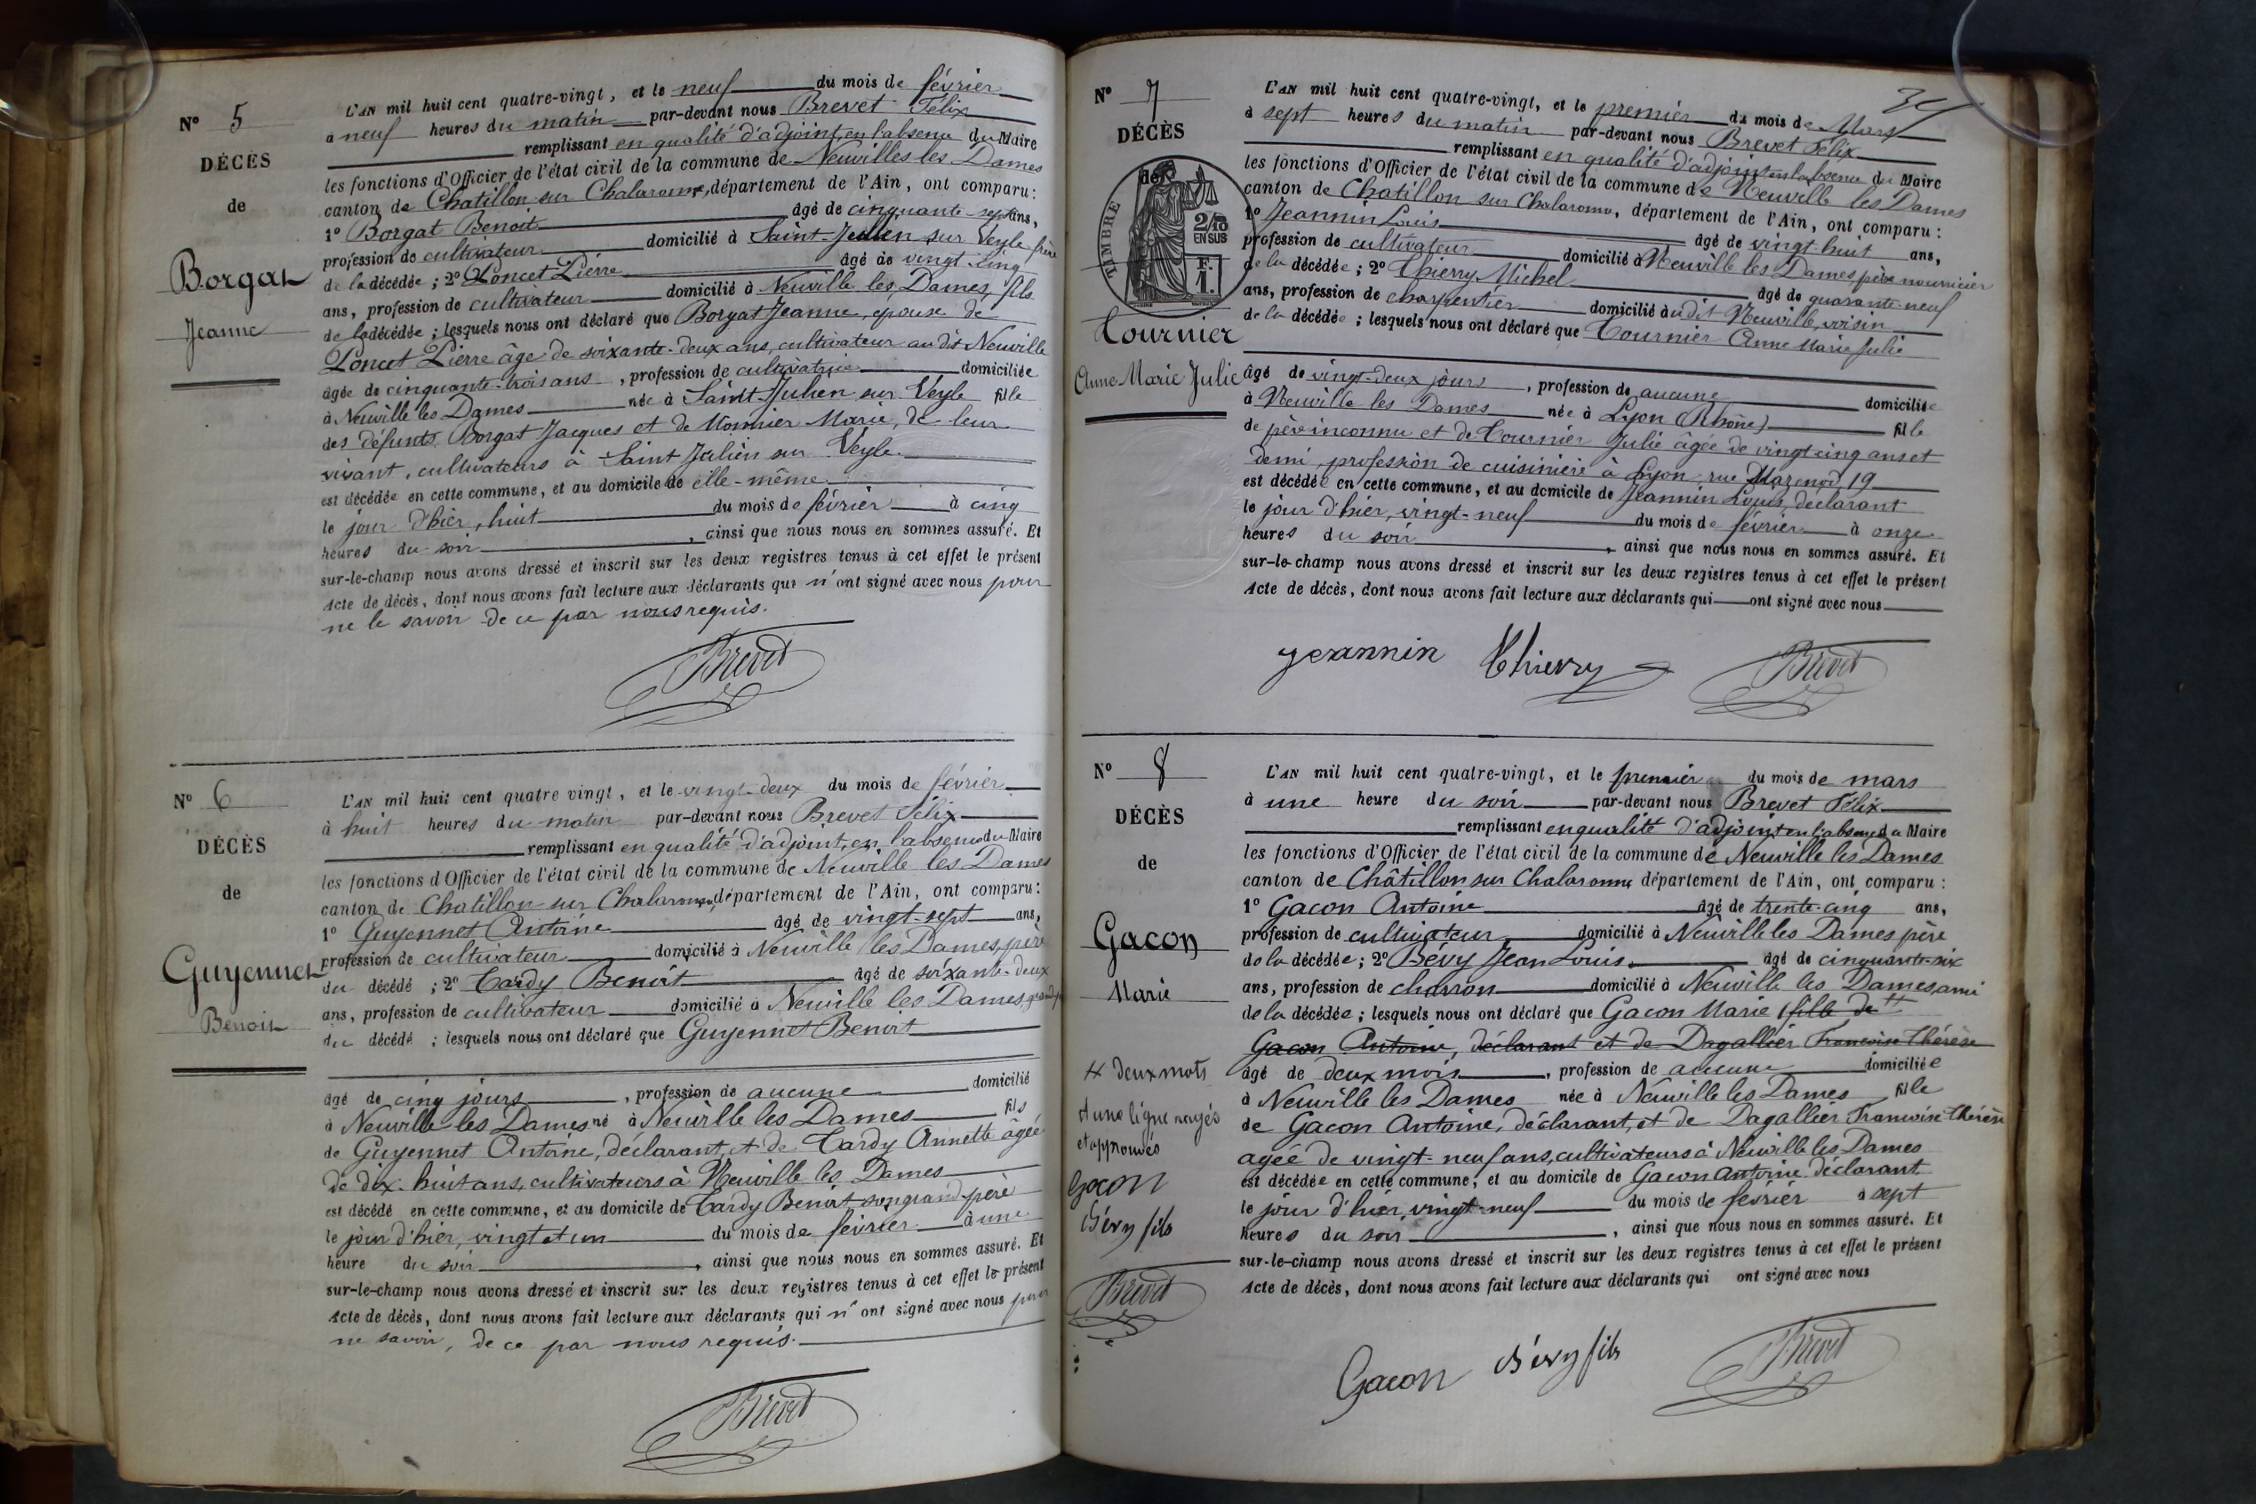 N° 5
DÉCÈS
de
Borgat
Jeanne
L'AN mil huit cent quatre-vingt, et le neuf du mois de février
à neuf heures du matin par-devant nous Brevet Félix
remplissant en qualité d'adjoint, en l'absence du Maire
les fonctions d'Officier de l'état civil de la commune de Neuvilles les Dames
canton de Chatillon sur Chalaronne, département de l'Ain, ont comparu :
1° Borgat Benoit âgé de cinquante-sept ans,
profession de cultivateur domicilié à Saint-Julien sur Veyle frère
de la décédée ; 2° Poncet Pierre âgé de vingt-cinq
ans, profession de cultivateur domicilié à Neuville les Dames, fils
de la décédée ; lesquels nous ont déclaré que Borgat Jeanne, épouse de
Poncet Pierre âgé de soixante-deux ans, cultivateur au dit Neuville
âgée de cinquante-trois ans, profession de cultivatrice domiciliée
à Neuville les Dames née à Saint-Julien sur Veyle fille
des défunts Borgat Jacques et de Monnier Marie, de leur
vivant, cultivateurs à Saint Julien sur Veyle.
est décédée en cette commune, et au domicile de elle-même
le jour d'hier, huit du mois de février à cinq
heures du soir, ainsi que nous nous en sommes assuré. Et
sur-le-champ nous avons dressé et inscrit sur les deux registres tenus à cet effet le présent
Acte de décès, dont nous avons fait lecture aux déclarants qui n'ont signé avec nous pour
ne le savoir de ce par nous requis.
Brevet
N° 6
DÉCÈS
de
Guyennet
Benoit
L'AN mil huit cent quatre vingt, et le vingt-deux du mois de février
à huit heures du matin par-devant nous Brevet Félix
remplissant en qualité d'adjoint, en l'absence du Maire
les fonctions d'Officier de l'état civil de la commune de Neuville les Dames
canton de Chatillon sur Chalaronne, département de l'Ain, ont comparu :
1° Guyennet Antoine âgé de vingt-sept ans,
profession de cultivateur domicilié à Neuville les Dames, père
du décédé ; 2° Tardy Benoit âgé de soixante-deux
ans, profession de cultivateur domicilié à Neuville les Dames,
du décédé ; lesquels nous ont déclaré que Guyennet Benoit
âgé de cinq jours, profession de aucune domicilié
à Neuville les Dames né à Neuville les Dames fils
de Guyennet Antoine, déclarant, et de Tardy Annette âgée
de dix-huit ans, cultivateurs à Neuville les Dames
est décédé en cette commune, et au domicile de Tardy Benoit son grand-père
le jour d'hier, vingt et un du mois de février à une
heure du soir, ainsi que nous nous en sommes assuré. Et
sur-le-champ nous avons dressé et inscrit sur les deux registres tenus à cet effet le présent
Acte de décès, dont nous avons fait lecture aux déclarants qui n'ont signé avec nous pour
ne savoir, de ce par nous requis.
Brevet
N° 7
DÉCÈS
de
TIMBRE
2/10
EN SUS
F.
1.
Tournier
Anne Marie Julie
L'AN mil huit cent quatre-vingt, et le premier du mois de Mars
à sept heures du matin par-devant nous Brevet Félix
remplissant en qualité d'adjoint en l'absence du Maire
les fonctions d'Officier de l'état civil de la commune de Neuville les Dames
canton de Chatillon sur Chalaronne, département de l'Ain, ont comparu :
1° Jeannin Louis âgé de vingt-huit ans,
profession de cultivateur domicilié à Neuville les Dames père nourricier
de la décédée ; 2° Thierry Michel âgé de quarante-neuf
ans, profession de charpentier domicilié au dit Neuville, voisin
de la décédée ; lesquels nous ont déclaré que Tournier Anne Marie Julie
âgé de vingt-deux jours, profession de aucune domiciliée
à Neuville les Dames née à Lyon (Rhône) fille
de père inconnu et de Tournier Julie âgée de vingt-cinq ans et
demi, profession de cuisinière à Lyon, rue Mazenod, 19
est décédée en cette commune, et au domicile de Jeannin Louis, déclarant
le jour d'hier, vingt-neuf du mois de février à onze
heures du soir, ainsi que nous nous en sommes assuré. Et
sur-le-champ nous avons dressé et inscrit sur les deux registres tenus à cet effet le présent
Acte de décès, dont nous avons fait lecture aux déclarants qui ont signé avec nous
Jeannin Thierry Brevet
N° 8
DÉCÈS
de
Gacon
Marie
L'AN mil huit cent quatre-vingt, et le premier du mois de mars
à une heure du soir par-devant nous Brevet Félix
remplissant en qualité d'adjoint en l'absence du Maire
les fonctions d'Officier de l'état civil de la commune de Neuville les Dames
canton de Châtillon sur Chalaronne département de l'Ain, ont comparu :
1° Gacon Antoine âgé de trente-cinq ans,
profession de cultivateur domicilié à Neuville les Dames père
de la décédée ; 2° Bévy Jean Louis âgé de cinquante-six
ans, profession de charron domicilié à Neuville les Dames, ami
de la décédée ; lesquels nous ont déclaré que Gacon Marie fille de
Gacon Antoine, déclarant et de Dagallier Francoise Thérèse
âgé de deux mois, profession de aucune domiciliée
à Neuville les Dames née à Neuville les Dames fille
de Gacon Antoine, déclarant, et de Dagallier Francoise Thérèse
agée de vingt-neuf ans, cultivateurs à Neuville les Dames
est décédée en cette commune, et au domicile de Gacon Antoine déclarant
le jour d'hier, vingt-neuf du mois de février à sept
heures du soir, ainsi que nous nous en sommes assuré. Et
sur-le-champ nous avons dressé et inscrit sur les deux registres tenus à cet effet le présent
Acte de décès, dont nous avons fait lecture aux déclarants qui ont signé avec nous
deux mots
et une ligne rayés
et approuvés
Gacon
Bévy fils
Brevet
Gacon Bévy fils Brevet